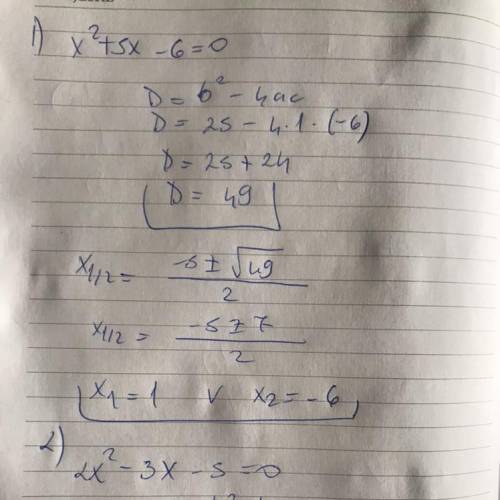 1) x²+5x-6=0
D = b² - 4ac
D = 25 - 4·1·(-6)
D = 25+24
D = 49
x1/2 = (-5 ± √49)/2
x1/2 = (-5 ± 7)/2
x1 = 1 ∨ x2 = -6
2) 2x² - 3x - 5 = 0